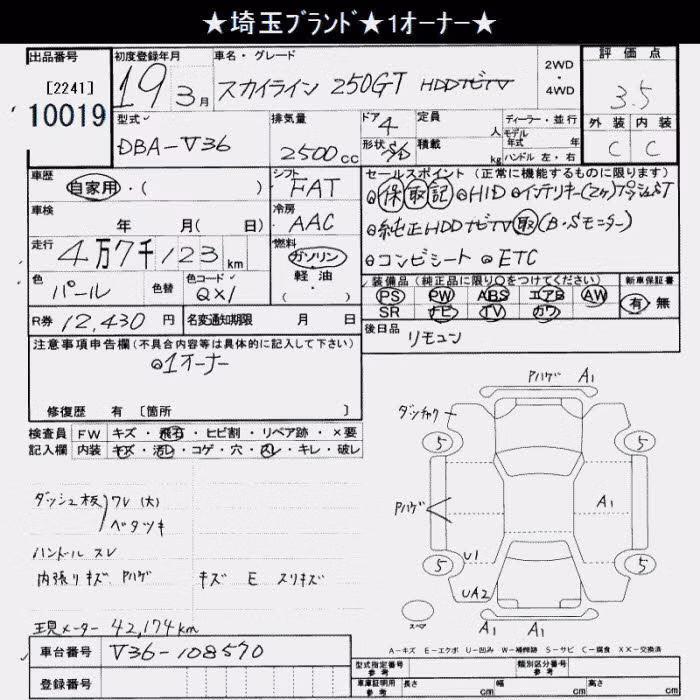 ★埼玉ブランド★1オーナー★
出品番号 初度登録年月 車名・グレード 評価点
[2241] 19年 3月 スカイライン 250GT HDDナビTV 2WD・4WD 3.5
10019
型式 DBA-V36 排気量 2500cc ドア 4 形状 S/D 定員 人 積載 kg ディーラー・並行 モデル年式 年式 ハンドル 左・右 外装 C 内装 C
車歴 自家用・( ) シフト FAT
車検 年 月( 日) 冷房 AAC
走行 4万7千123km 燃料 ガソリン 軽油 ( )
色 パール 色替 色コード QX1
R券 12,430円 名変通知期限 月 日
セールスポイント(正常に機能するものに限ります)
◎保取記◎HID◎インテリキー(2ヶ)プッシュST
◎純正HDDナビTV取(B・Sモニター)
◎コンビシート◎ETC
装備品(純正品に限り○をつけてください) 新車保証書
PS PW ABS エアB AW 有・無
SR ナビ TV カワ
後日品 リモコン
注意事項申告欄(不具合内容等は具体的に記入して下さい)
◎1オーナー
修復歴 有 [箇所 ]
検査員 FW キズ・飛石・ヒビ割・リペア跡・×要
記入欄 内装 キズ・汚レ・コゲ・穴・スレ・キレ・破レ
ダッシュ板 ワレ(大)
ベタツキ
ハンドル スレ
内張りキズ Pハゲ キズ E スリキズ
現メーター 42,174km
車台番号 V36-108570
登録番号
Pハゲ A1
5 5
Pハゲ A1
U1
5 5
UA2
スペア A1 A1
A-キズ E-エクボ U-凹み W-補修跡 S-サビ C-腐食 XX-交換済
型式指定番号 参考 類別区分番号 参考
車庫証明用 参考 長さ cm 幅 cm 高さ cm